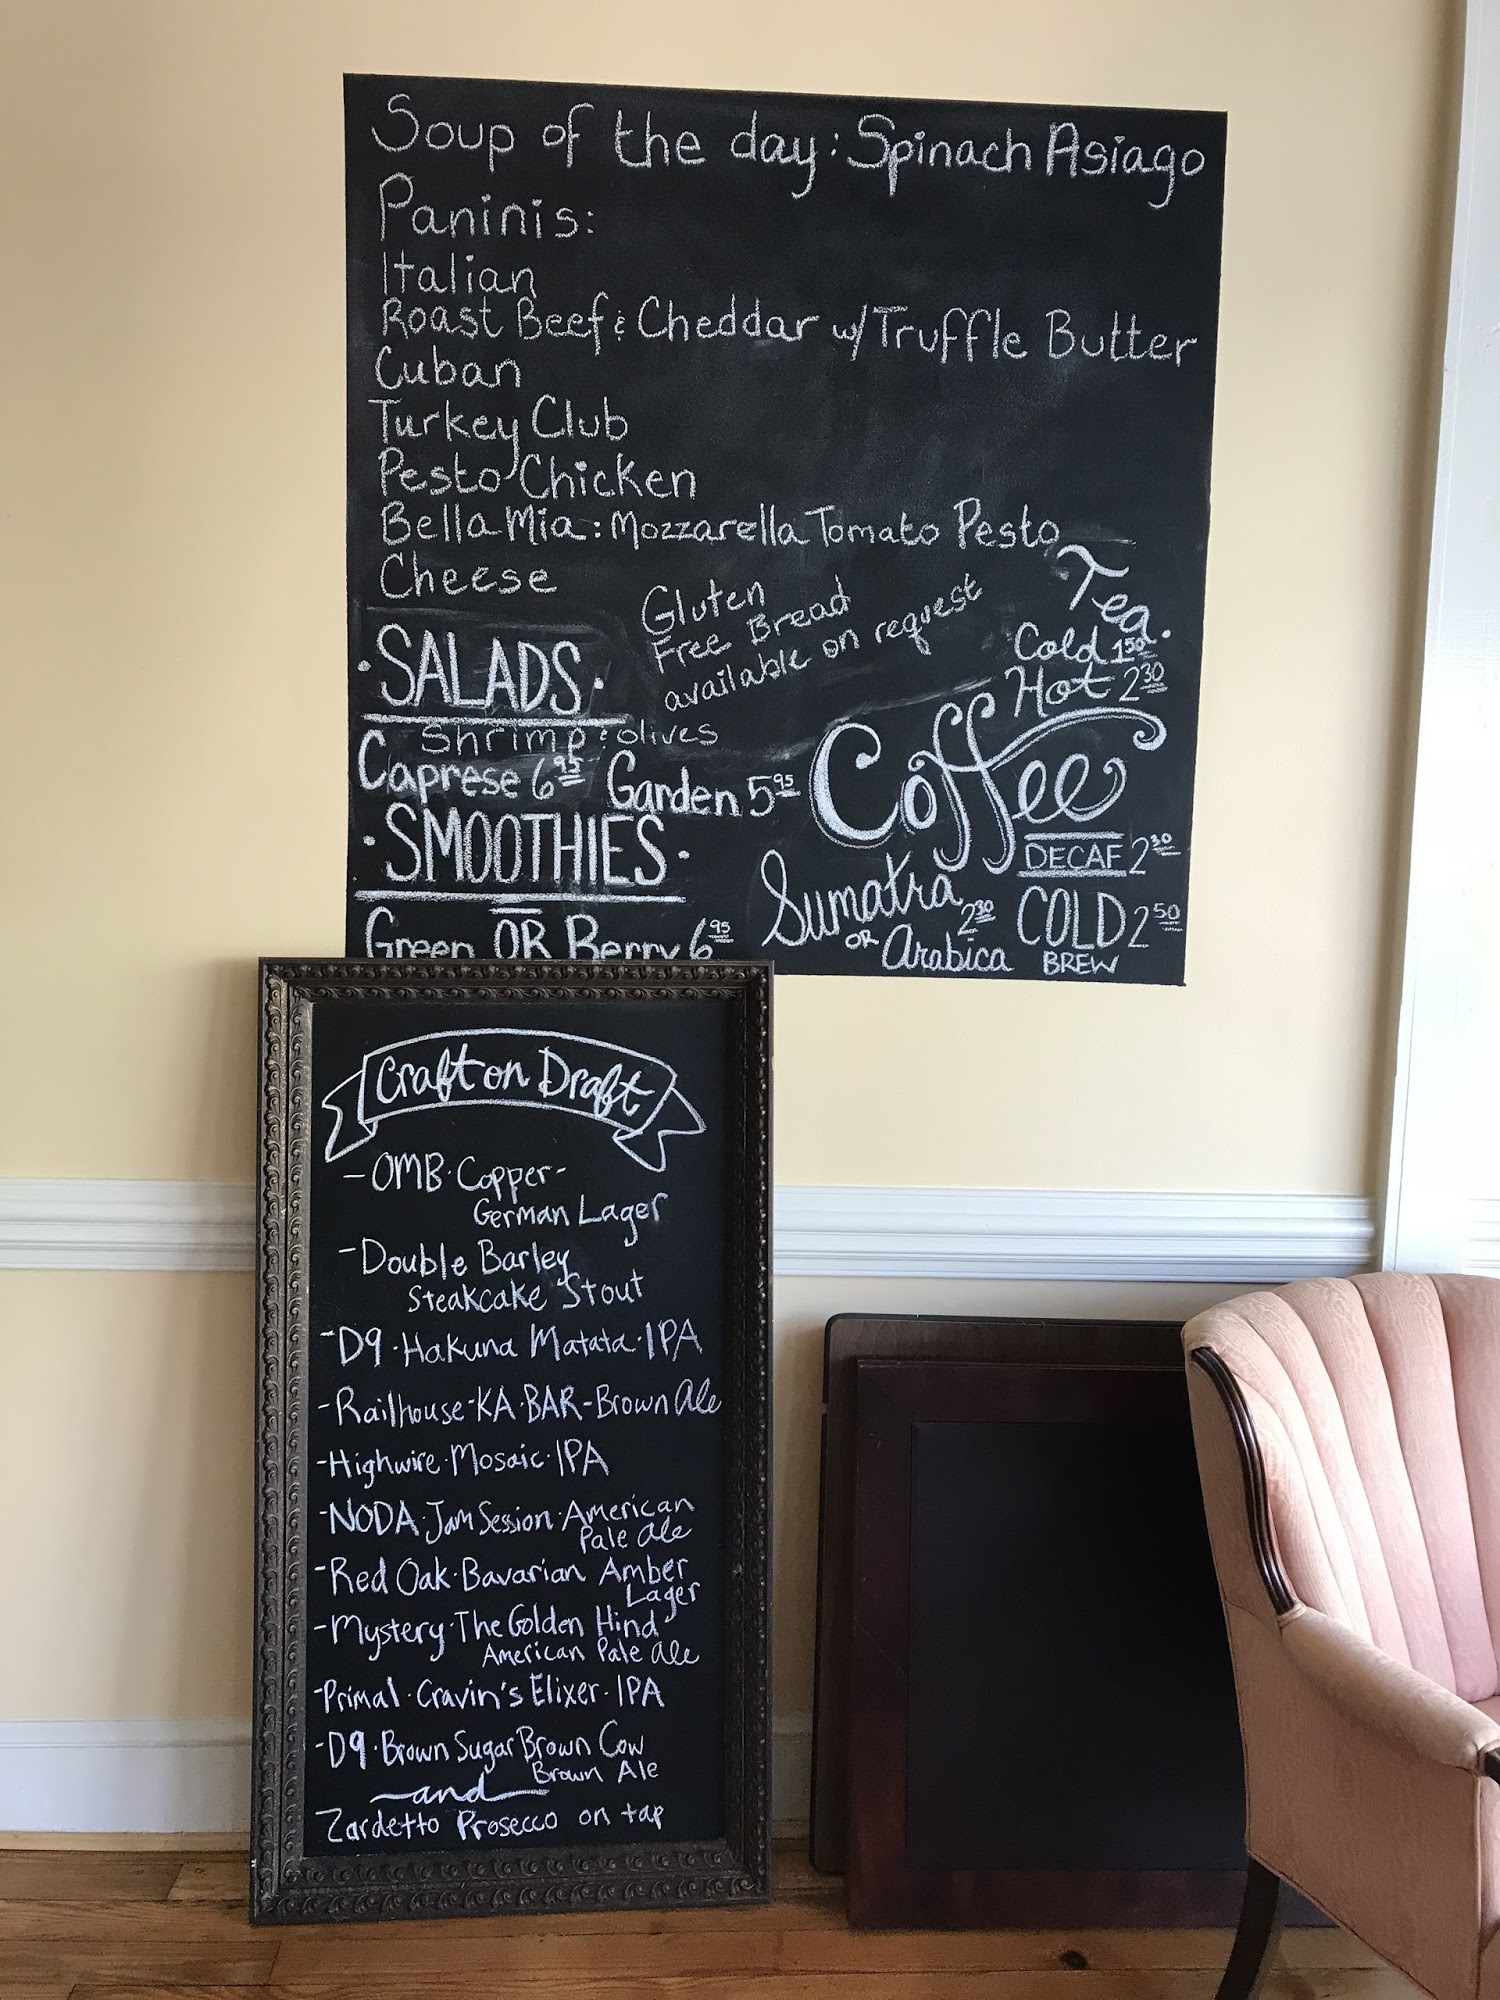 Soup of the day: Spinach Asiago
Paninis:
Italian
Roast Beef & Cheddar w/ Truffle Butter
Cuban
Turkey Club
Pesto Chicken
Bella Mia: Mozzarella Tomato Pesto
Cheese
Gluten
Free Bread
available on request
·SALADS·
Shrimp & olives
Caprese 6.95 Garden 5.95
·SMOOTHIES·
Green OR Berry 6.95
Tea
Cold 1.50
Hot 2.30
Coffee
DECAF 2.30
Sumatra 2.30
OR Arabica
COLD 2.50
BREW
Craft on Draft
-OMB·Copper-
German Lager
-Double Barley
Steakcake Stout
-D9·Hakuna Matata·IPA
-Railhouse-KA·BAR-Brown Ale
-Highwire·Mosaic·IPA
-NODA·Jam Session·American
Pale Ale
-Red Oak·Bavarian Amber
Lager
-Mystery·The Golden Hind
American Pale Ale
-Primal·Cravin's Elixer·IPA
-D9·Brown Sugar Brown Cow
Brown Ale
and
Zardetto Prosecco on tap